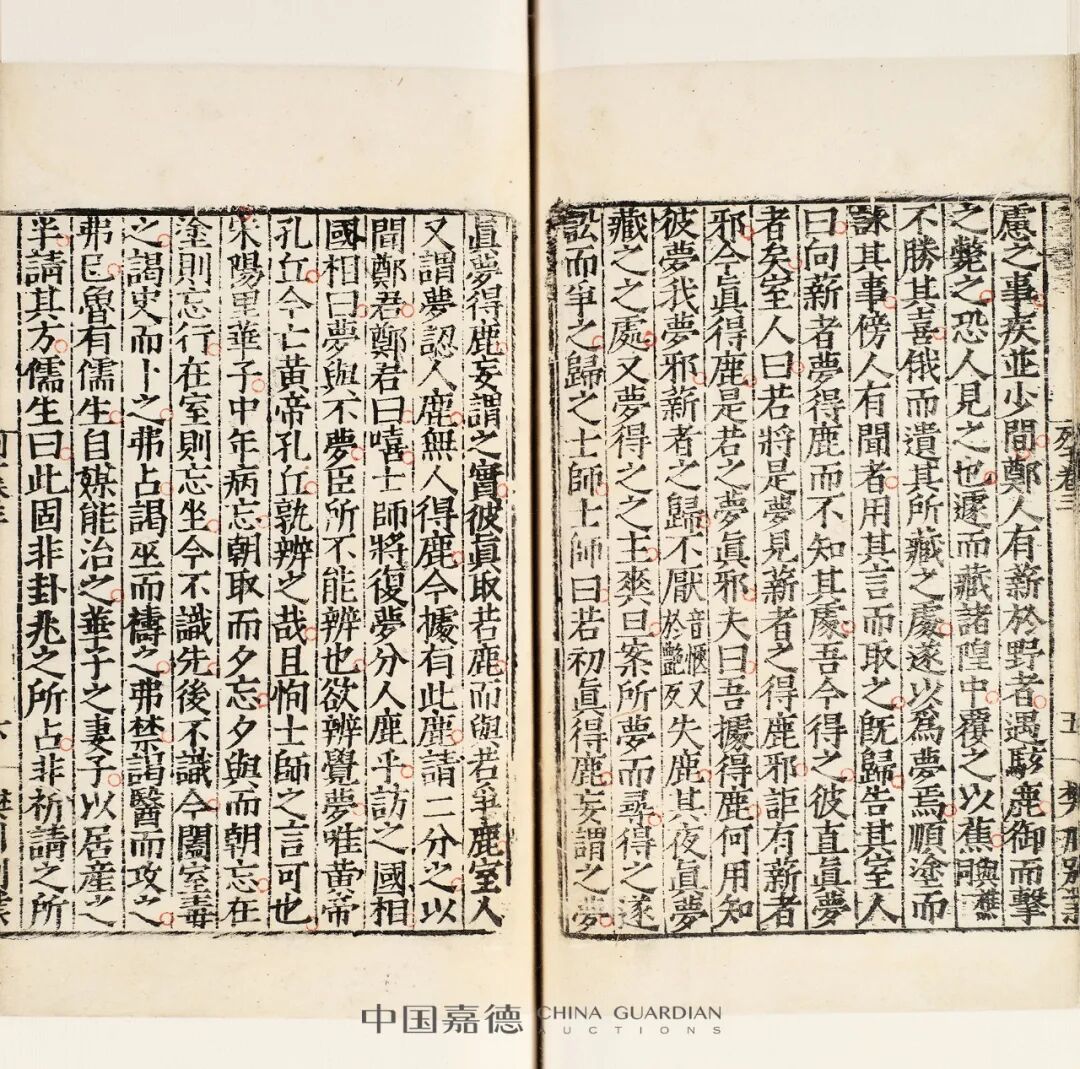 慮之事疾並少間鄭人有薪於野者遇駭鹿御而擊
之斃之恐人見之也遽而藏諸隍中覆之以蕉與樵同
不勝其喜俄而遺其所藏之處遂以爲夢焉順塗而
詠其事傍人有聞者用其言而取之旣歸告其室人
曰向薪者夢得鹿而不知其處吾今得之彼直眞夢
者矣室人曰若將是夢見薪者之得鹿邪詎有薪者
邪今眞得鹿是若之夢眞邪夫曰吾據得鹿何用知
彼夢我夢邪薪者之歸不厭音愜又於艷反失鹿其夜眞夢
藏之之處又夢得之之主爽旦案所夢而尋得之遂
訟而爭之歸之士師士師曰若初眞得鹿妄謂之夢
列子卷三
五
樊川別業
眞夢得鹿妄謂之實彼眞取若鹿而與若爭鹿室人
又謂夢認人鹿無人得鹿今據有此鹿請二分之以
聞鄭君鄭君曰嘻士師將復夢分人鹿乎訪之國相
國相曰夢與不夢臣所不能辨也欲辨覺夢唯黃帝
孔丘今亡黃帝孔丘孰辨之哉且恂士師之言可也
宋陽里華子中年病忘朝取而夕忘夕與而朝忘在
塗則忘行在室則忘坐今不識先後不識今闔室毒
之謁史而卜之弗占謁巫而禱之弗禁謁醫而攻之
弗已魯有儒生自媒能治之華子之妻子以居産之
半請其方儒生曰此固非卦兆之所占非祈請之所
中国嘉德 CHINA GUARDIAN
AUCTIONS